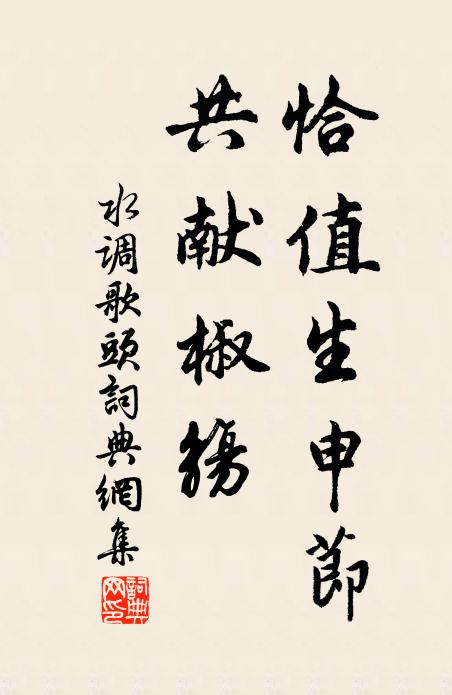 恰值生申節
共献椒觴
水调歌頭詞典網集
詞典网印